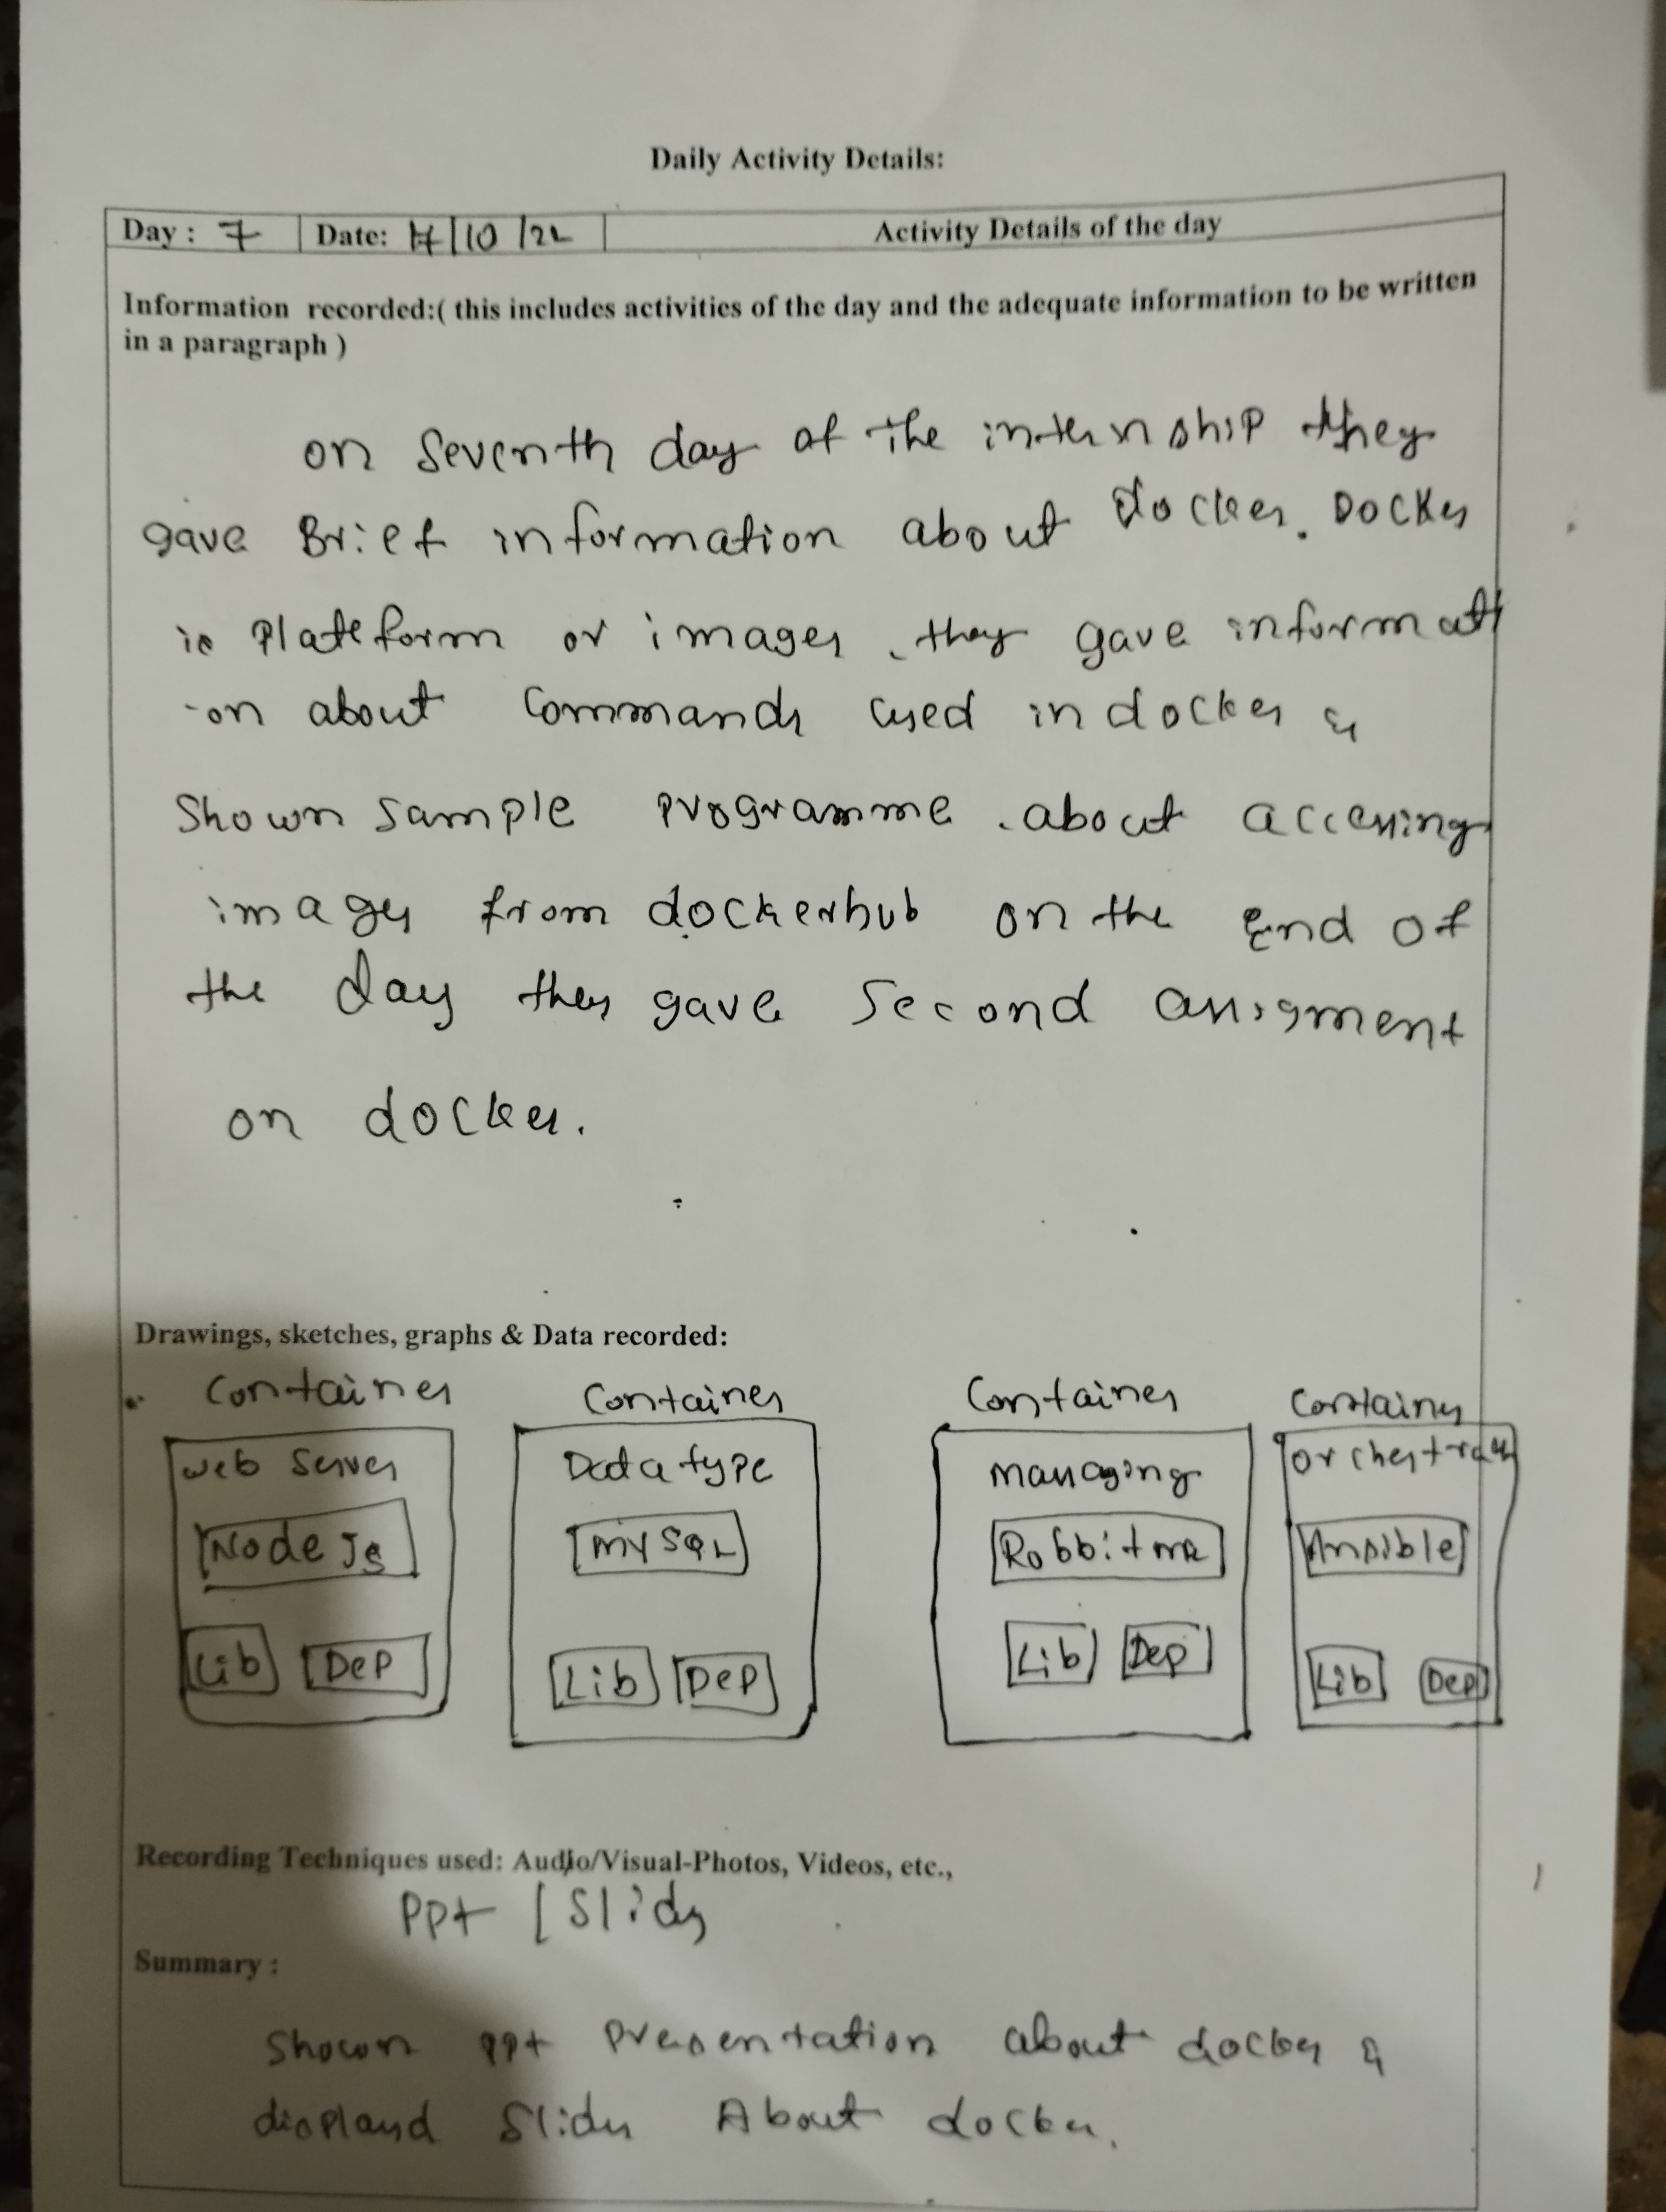 Daily Activity Details:
Day : 7 Date: /10/22 Activity Details of the day
Information recorded:( this includes activities of the day and the adequate information to be written
in a paragraph )
on Seventh day of the internship they
gave Brief information about docker. Docker
is Plateform or images. they gave informati
-on about Commands used in docker &
Shown sample programme about accessing
images from dockerhub on the End of
the day they gave Second assigment
on docker.
Drawings, sketches, graphs & Data recorded:
Container Container Container Container
Web Server Data type managing orchestrat
Node Js MySQL Rabbitmq Ansible
Lib Dep Lib Dep Lib Dep Lib Dep
Recording Techniques used: Audio/Visual-Photos, Videos, etc.,
PPt / Slides
Summary :
Shown ppt presentation about docker &
displayed Slides About docker.